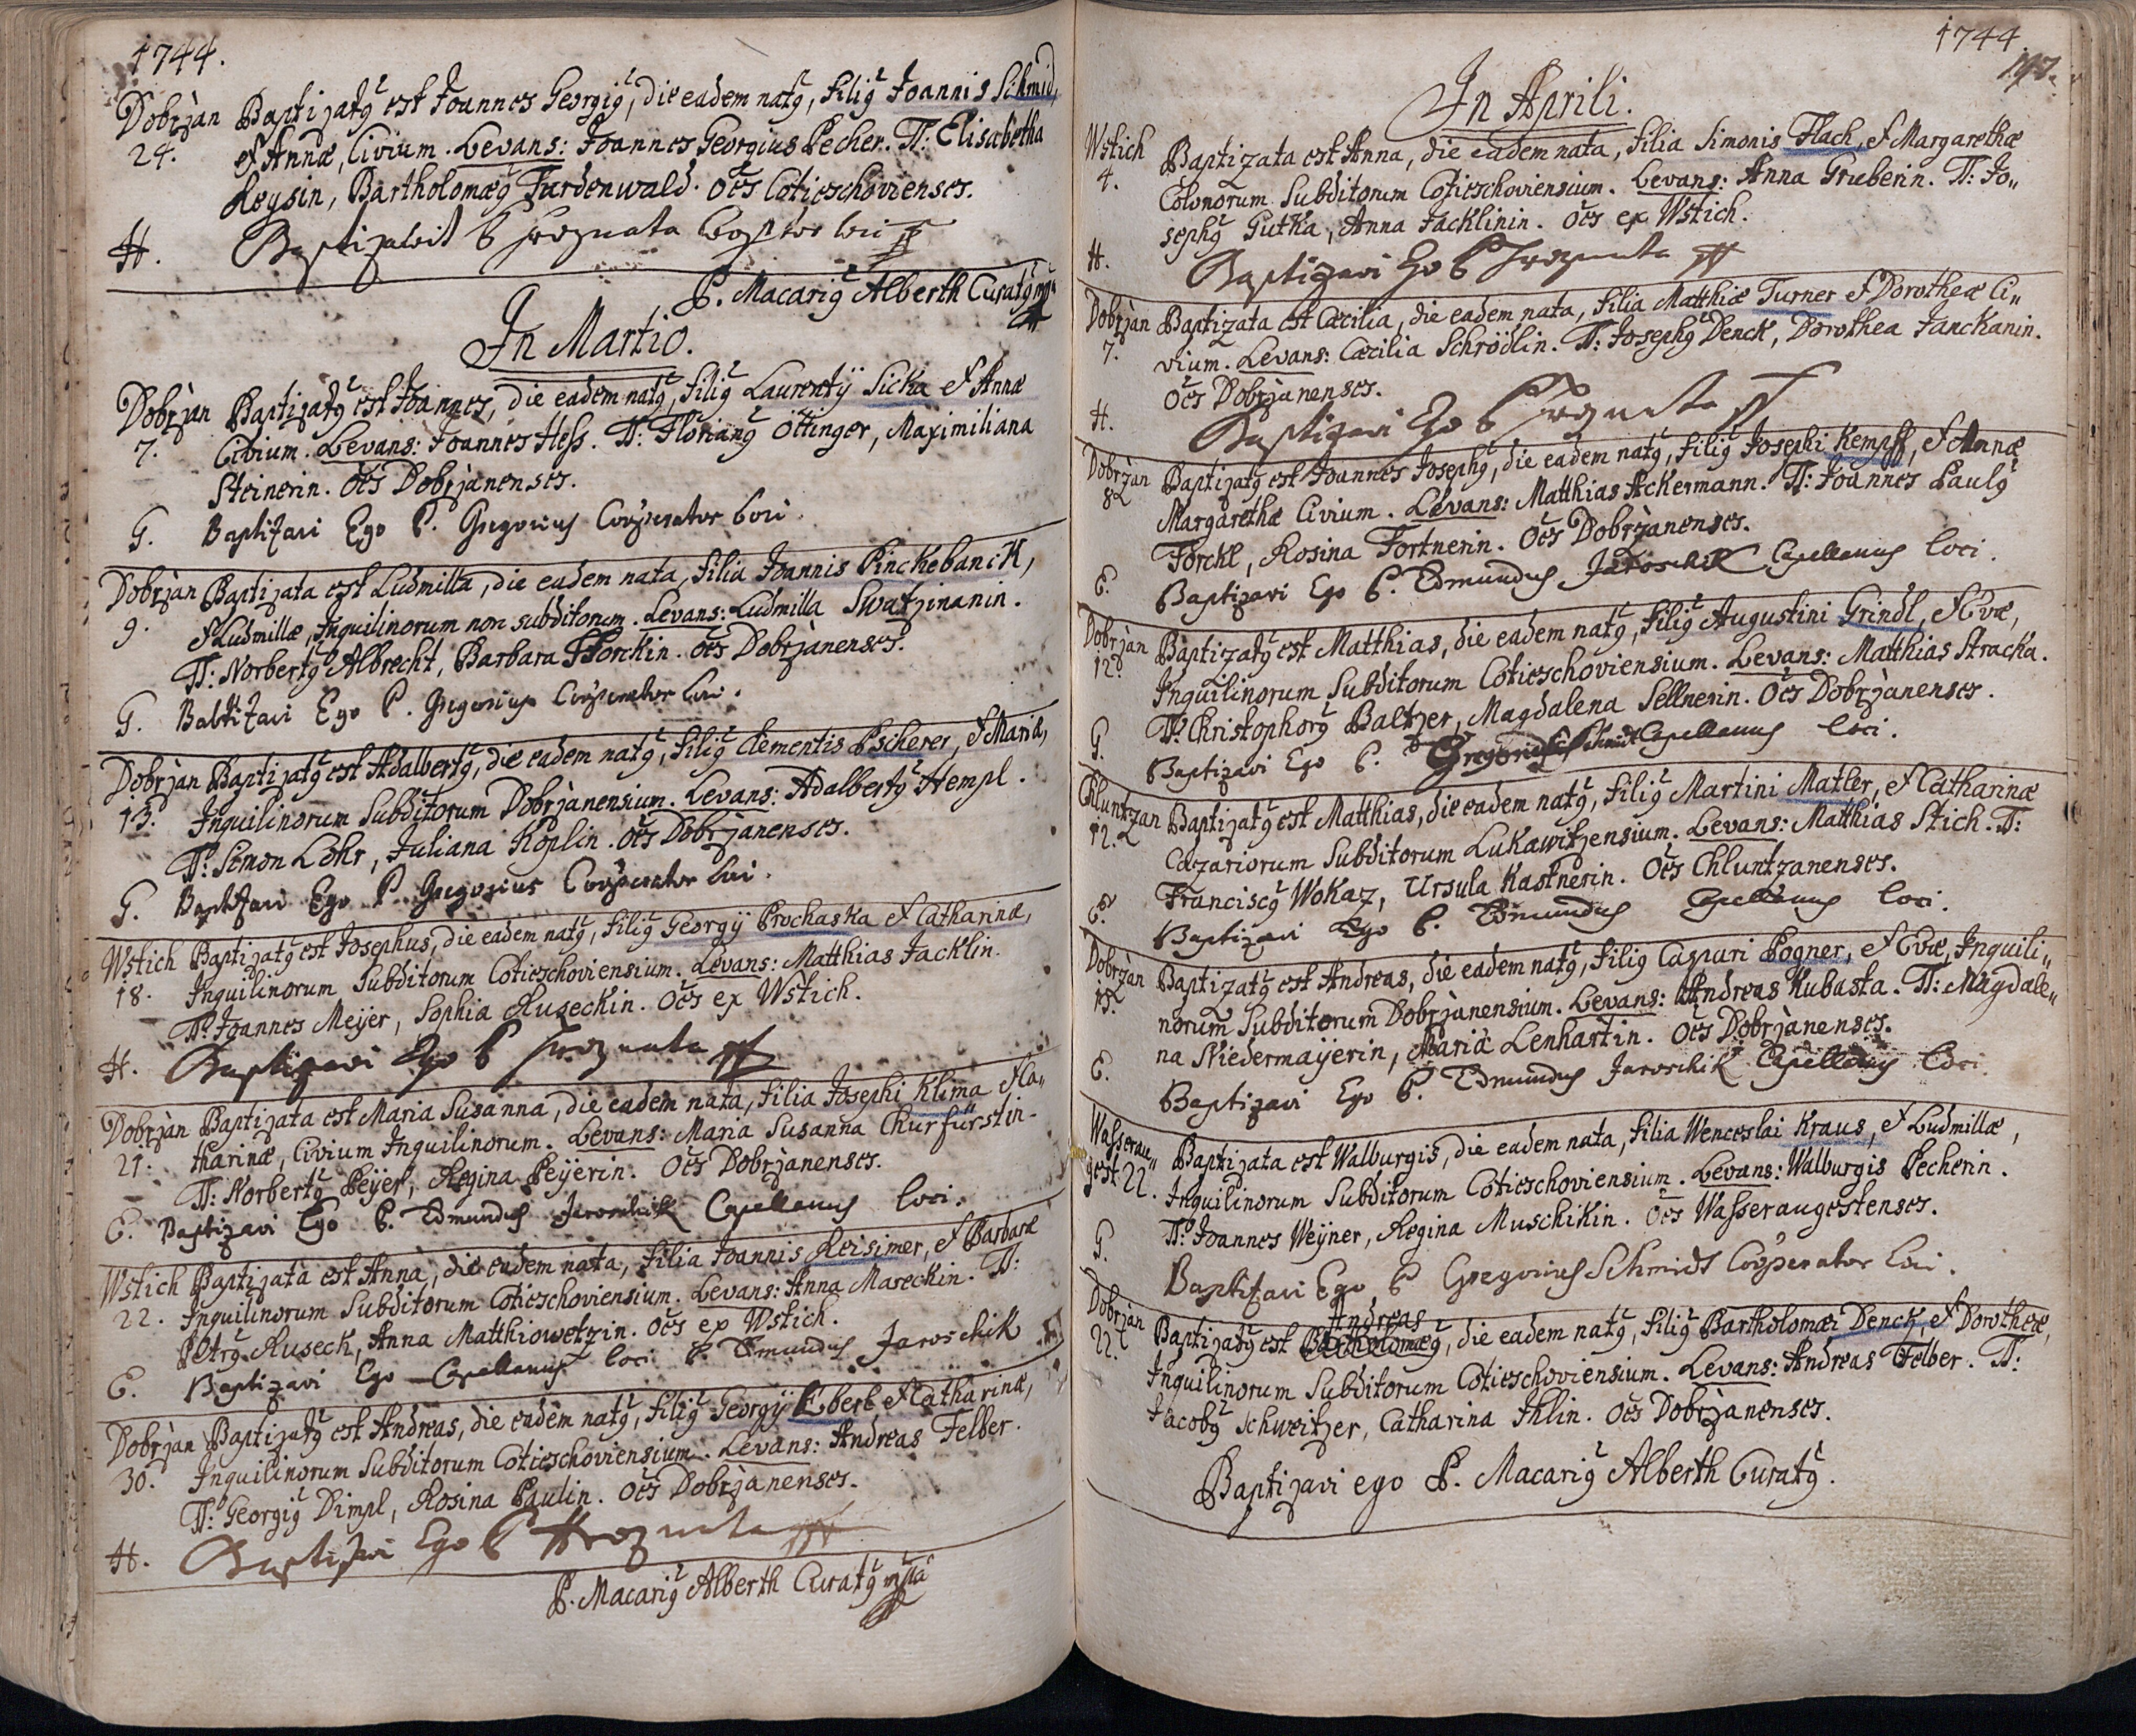 1744.
Dobrzàn Baptizatꝯ est Joannes Georgiꝯ, die eadem natꝯ, filiꝯ Joannis Schmid,
24. et Annæ, Civium. Levans: Joannes Georgius Pecher. TT: Elisabetha
Reysin, Bartholomæꝯ Furdenwald. Oes Cotieschovienses.
H. Baptizavit P Hroznata Coop loci
P. Macariꝯ Alberth Curatꝯ mpa
In Martio.
Dobrzan Baptizatꝯ est Joannes, die eadem natꝯ, filiꝯ Laurentÿ Sicka et Annæ
7. Civium. Levans: Joannes Hess. TT: Florianꝯ Öttinger, Maximiliana
Steinerin. Oes Dobrzànenses.
G. Baptizavi Ego P. Gregorius Cooperator Loci.
Dobrzan Baptizata est Ludmilla, die eadem nata, filia Joannis Pinckebanck,
9. et Ludmillæ, Inquilinorum non subditorum. Levans: Ludmilla Swatzinanin.
TT: Norbertꝯ Albrecht, Barbara Storckin. Oes Dobrzànenses.
G. Babtizavi Ego P. Gregorius Cooperator Loci.
Dobrzan Baptizatꝯ est Adalbertꝯ, die eadem natꝯ, filiꝯ Clementis Pscherer, et Mariæ,
13. Inquilinorum Subditorum Dobrzànensium. Levans: Adalbertꝯ Hempl.
TT: Simon Löhr, Juliana Köplin. Oes Dobrzànenses.
G. Baptizavi Ego P. Gregorius Cooperator Loci.
Wstich Baptizatꝯ est Josephus, die eadem natꝯ, filiꝯ Georgÿ Prochaska et Catharinæ,
18. Inquilinorum Subditorum Cotieschoviensium. Levans: Matthias Jacklin.
TT: Joannes Meÿer, Sophia Ruseckin. Oes ex Wstich.
H. Baptizavi Ego P Hroznata
Dobrzàn Baptizata est Maria Susanna, die eadem nata, filia Josephi Klima et Ca„
21. tharinæ, Civium Inquilinorum. Levans: Maria Susanna Churfürstin.
TT: Norbertꝯ Peÿer, Regina Peÿerin. Oes Dobrzànenses.
E. Baptizavi Ego P. Edmundus Jaroschik Capellanus loci.
Wstich Baptizata est Anna, die eadem nata, filia Joannis Reisimer, et Barbaræ
22. Inquilinorum Subditorum Cotieschoviensium. Levans: Anna Mareckin. TT:
Petrꝯ Ruseck, Anna Matthiowetzin. Oes ex Wstich.
E. Baptizavi Ego Capellanus loci P. Edmundus Jaroschik
Dobrzan Baptizatꝯ est Andreas, die eadem natꝯ, filiꝯ Georgÿ Eberl et Catharinæ,
30. Inquilinorum Subditorum Cotieschoviensium. Levans: Andreas Felber.
TT: Georgiꝯ Dimpl, Rosina Paulin. Oes Dobrzànenses.
H. Baptizavi Ego P Hroznata
P. Macariꝯ Alberth Curatꝯ mpa
1744
In Aprili.
Wstich Baptizata est Anna, die eadem nata, filia Simonis Flach, et Margarethæ
4. Colonorum Subditorum Cotieschoviensium. Levans: Anna Gruberin. TT: Jo„
sephꝯ Gutka, Anna Jacklinin. Oes ex Wstich.
H. Baptizavi Ego P Hroznata
Dobrzan Baptizata est Cæcilia, die eadem nata, filia Matthiæ Turner et Dorotheæ Ci„
7. vium. Levans: Cæcilia Schrödlin. TT: Josephꝯ Denck, Dorothea Janckanin.
Oes Dobrzànenses.
H. Baptizavi Ego P Hroznata
Dobrzan Baptizatꝯ est Joannes Josephꝯ, die eadem natꝯ, filiꝯ Josephi Kempff, et Annæ
8. Margarethæ Civium. Levans: Matthias Ackermann. TT: Joannes Paulꝯ
Forckl, Rosina Fortnerin. Oes Dobrzànenses.
E. Baptizavi Ego P. Edmundus Jaroschik Capellanus loci.
Dobrzàn Baptizatꝯ est Matthias, die eadem natꝯ, filiꝯ Augustini Grindl, et Evæ,
12. Inquilinorum Subditorum Cotieschoviensium. Levans: Matthias Stracka.
TT: Christophorꝯ Baltzer, Magdalena Sellnerin. Oes Dobrzànenses.
G. Baptizavi Ego P. Gregorius Schmidt Capellanus loci.
Chluntzan Baptizatꝯ est Matthias, die eadem natꝯ, filiꝯ Martini Matler, et Catharinæ
12. Cazariorum Subditorum Lukawitzensium. Levans: Matthias Stich. TT:
Franciscꝯ Wokaz, Ursula Kastnerin. Oes Chluntzanenses.
E. Baptizavi Ego P. Edmundus Capellanus loci.
Dobrzàn Baptizatꝯ est Andreas, die eadem natꝯ, filiꝯ Caspari Pogner, et Evæ, Inquili„
15. norum Subditorum Dobrzànensium. Levans: Andreas Kubasta. TT: Magdale„
na Niedermaÿerin, Maria Lenhartin. Oes Dobrzànenses.
E. Baptizavi Ego P. Edmundus Jaroschik Capellanus loci.
Wasserau„ Baptizata est Walburgis, die eadem nata, filia Wenceslai Kraus, et Ludmillæ,
gest 22. Inquilinorum Subditorum Cotieschoviensium. Levans: Walburgis Pecherin.
TT: Joannes Weÿner, Regina Muschikin. Oes Wasseraugestenses.
G. Baptizavi Ego P Gregorius Schmidt Cooperator Loci.
Andreas
Dobrzàn Baptizatꝯ est Bartholomæꝯ, die eadem natꝯ, filiꝯ Bartholomæi Denck, et Dorotheæ,
22. Inquilinorum Subditorum Cotieschoviensium. Levans: Andreas Felber. TT:
Jacobꝯ Schweitzer, Catharina Ihlin. Oes Dobrzànenses.
Baptizavi ego P. Macariꝯ Alberth Curatꝯ.